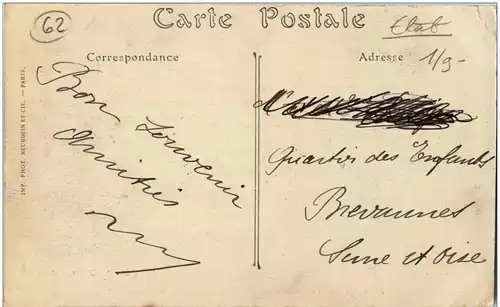 62
Carte Postale
Etat
1/9-
Correspondance
Adresse
Bon Souvenir
Amitiés
Quartier des Enfants
Brevannes
Seine et Oise
IMP. PHOT. NEURDEIN ET CIE. — PARIS.